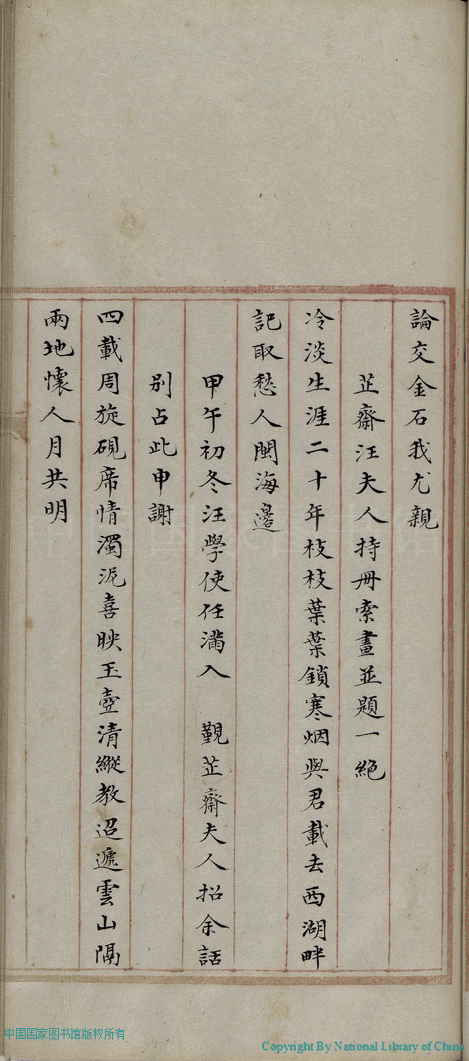 論交金石我尤親
芷齋汪夫人持冊索畫並題一絕
冷淡生涯二十年枝枝葉葉鎖寒烟與君載去西湖畔
記取愁人閩海邊
甲午初冬汪學使任滿入 覲芷齋夫人招余話
別占此申謝
四載周旋硯席情濁泥喜映玉壺清縱教迢遞雲山隔
兩地懷人月共明
中国国家图书馆版权所有
Copyright By National Library of China